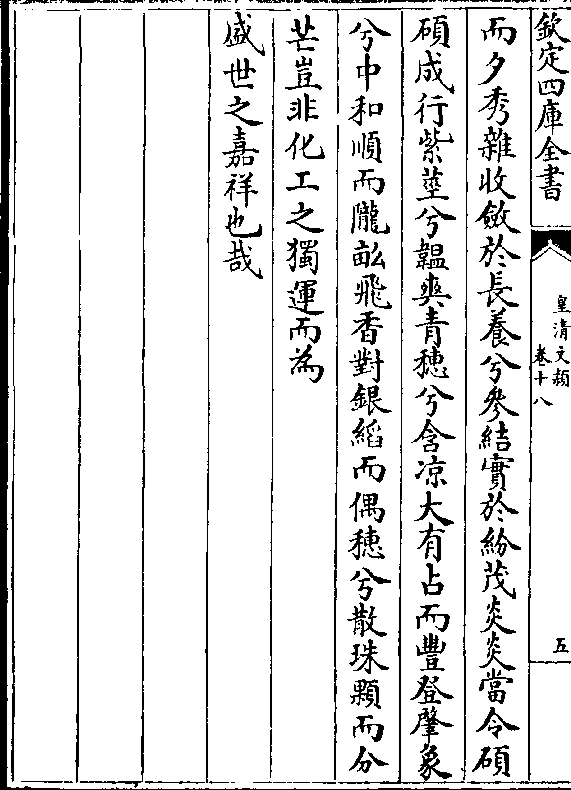 欽定四庫全書
皇清文穎
卷十八
五
而夕秀雜收斂於長養兮參結實於紛茂炎炎當令碩
碩成行紫莖兮韞爽青穗兮含凉大有占而豐登肇象
兮中和順而隴畝飛香對銀縚而偶穗兮散珠顆而分
芒豈非化工之獨運而為
盛世之嘉祥也哉